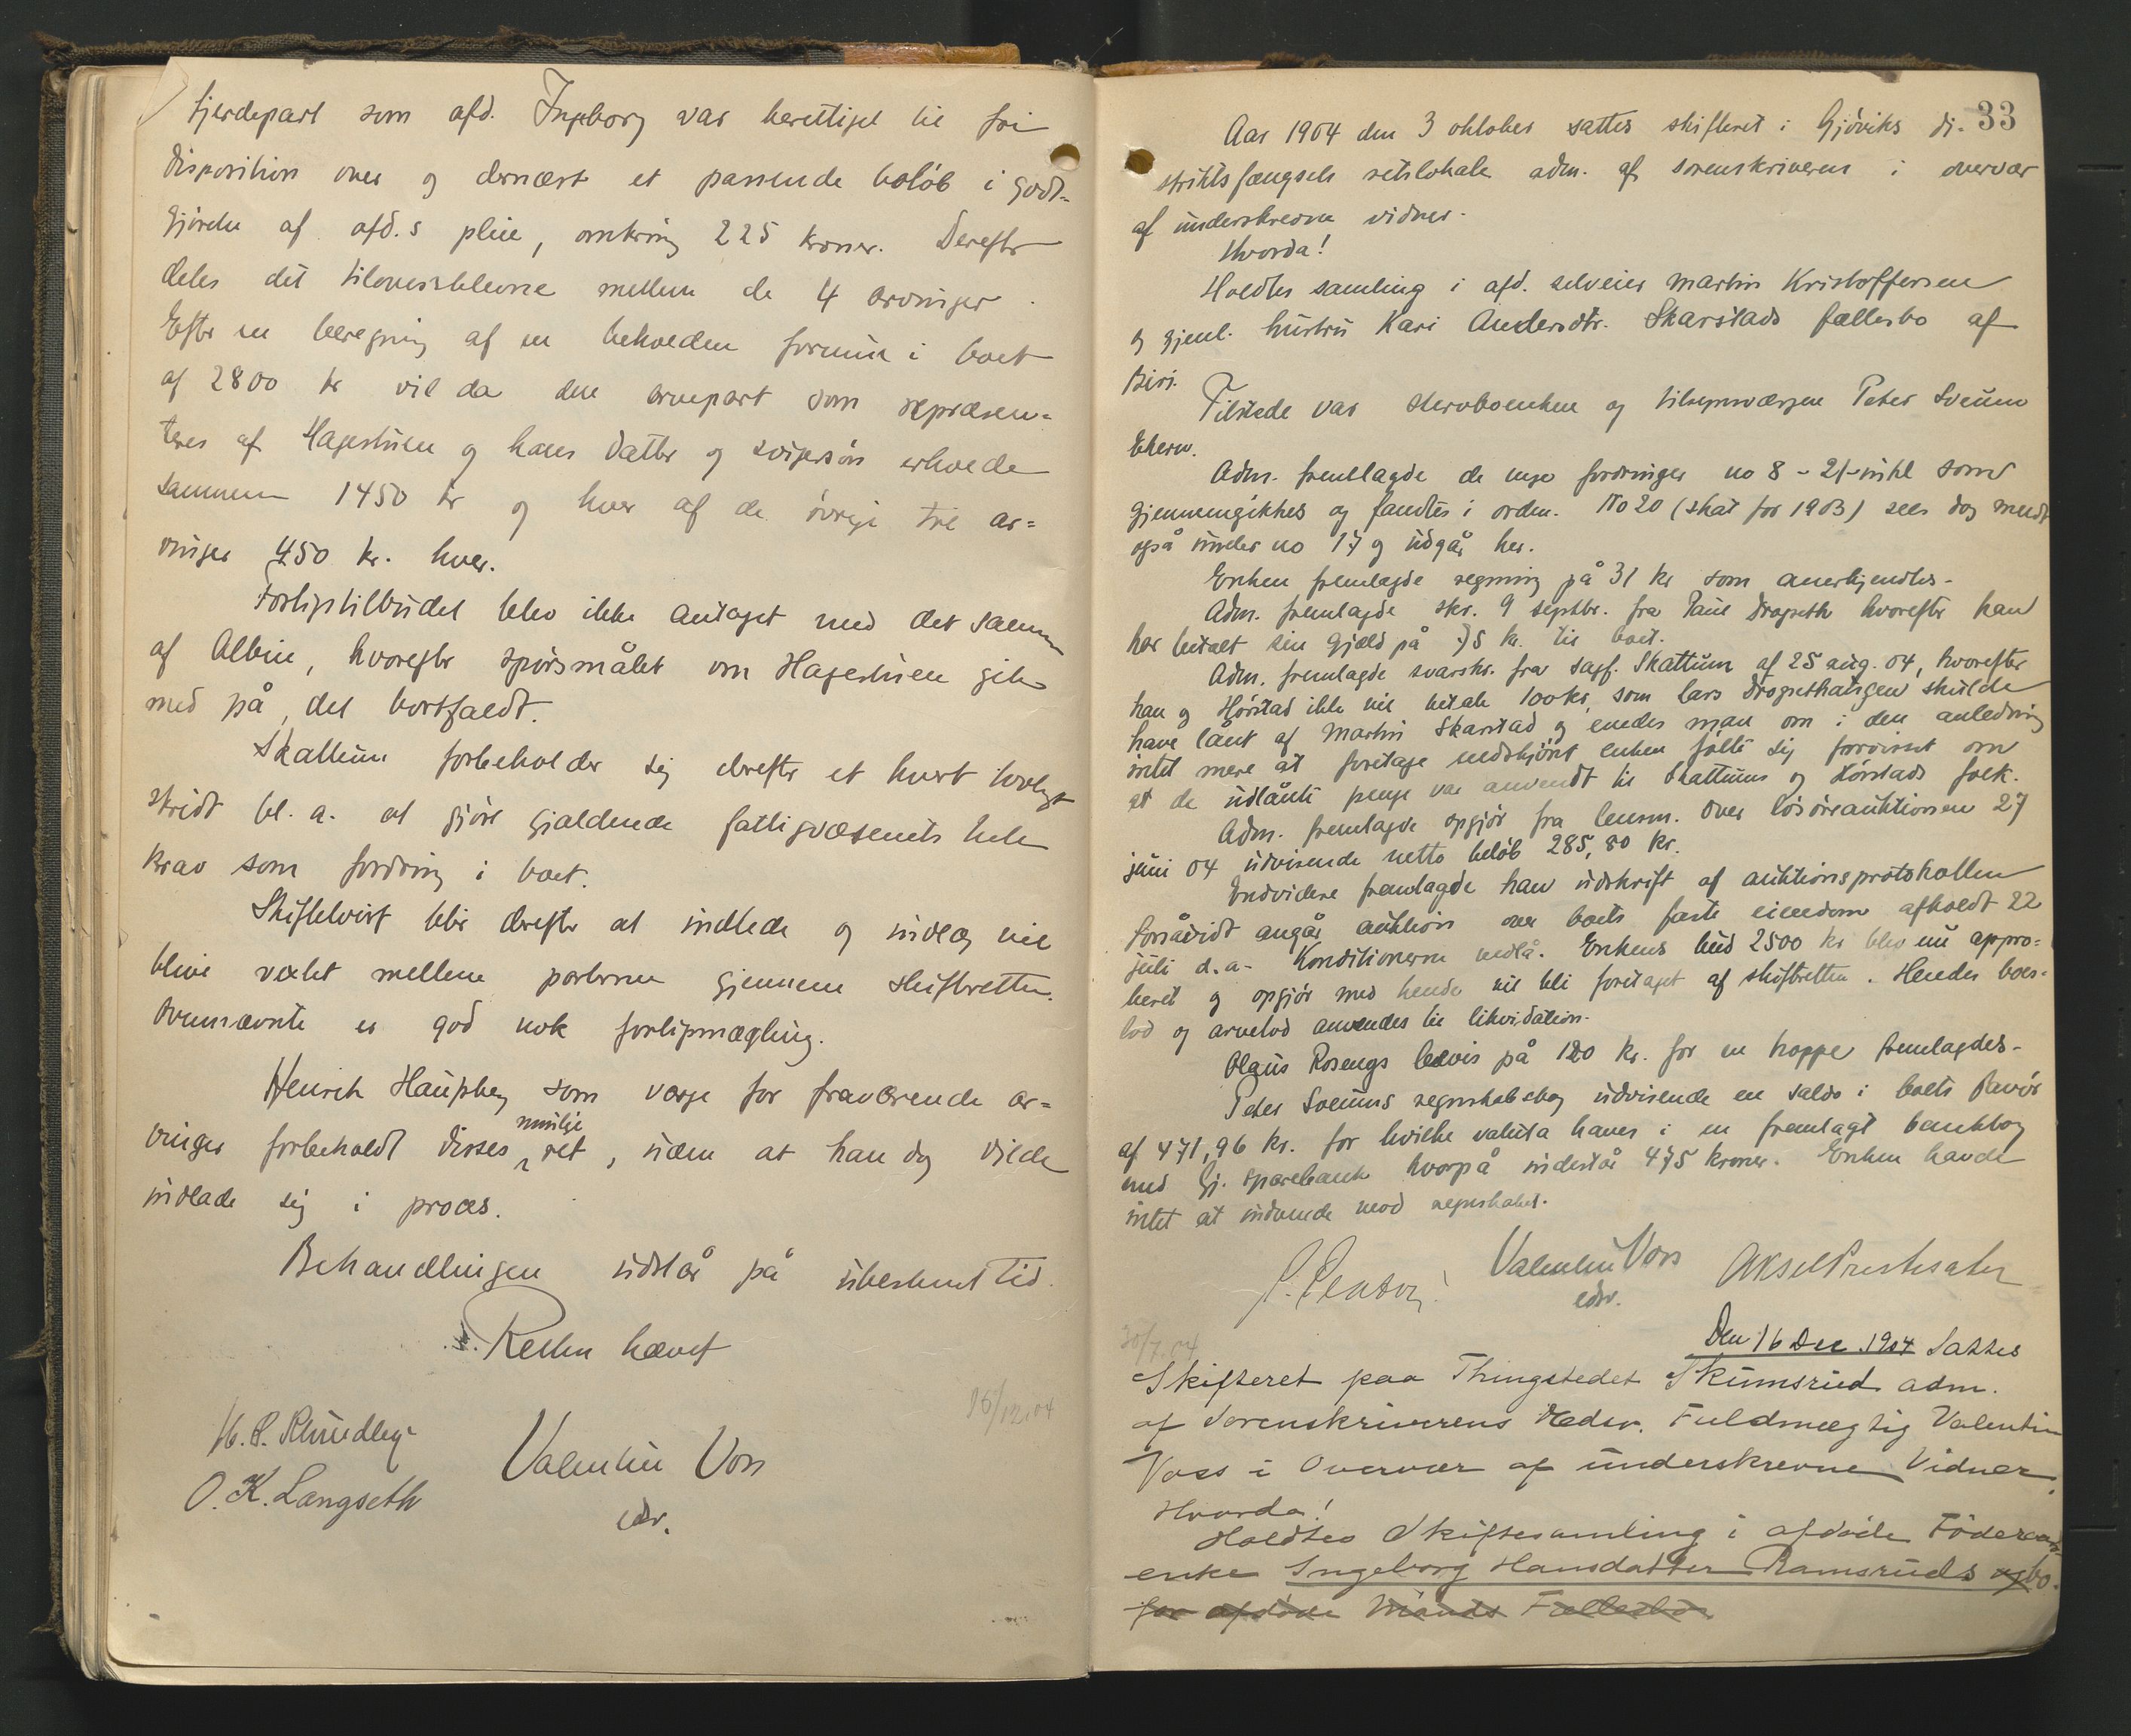 fjerdepart som afd. Ingeborg var berettiget til fri
disposition over og dernæst et passende beløb i godt-
gjørelse af afd.s pleie, omkring 225 kroner. Derefter
deles det tiloversblevne mellem de 4 arvinger.
Efter en beregning af en beholden formue i boet
af 2800 kr vil da den arvepart som repræsen-
teres af Hagestuen og hans datter og svigersøn erholde
sammen 1450 kr og hver af de øvrige tre ar-
vinger 450 kr. hver.
Forligstilbudet blev ikke antaget med det samme
af Albin, hvorefter spørsmålet om Hagestuen gik
med på det bortfaldt.
Skattum forbeholder sig derefter et hvert lovligt
skridt bl. a. at gjøre gjældende fattigvæsenets hele
krav som fordring i boet.
Skiftetvist blir derefter at indlede og indlæg vil
blive vexlet mellem parterne gjennem skifteretten.
Ovennævnte er god nok forligsmægling.
Henrik Haugsberg som verge for fraværende ar-
vinger forbeholdt disses mulige ret, uden at han dog vilde
indlade sig i proces.
Behandlingen udstår på ubestemt tid.
Retten hævet
16/12.04
H. P. Smedby
O. K. Langseth
Valentin Voss
edsv.
33
Aar 1904 den 3 oktober sattes skifteret i Gjøviks di-
striktsfængsels retslokale adm. af sorenskriveren i overvær
af underskrevne vidner.
Hvorda!
Holdtes samling i afd. selveier Martin Kristoffersen
og gjenl. hustru Kari Andersdtr. Skarstads fællesbo af
Biri.
Tilstede var stervboenken og tilsynsværgen Peter Sveum
Ekern.
Adm. fremlagde de nye fordringer no 8 - 21 inkl som
gjennemgikkes og fandtes i orden. No 20 (skat for 1903) sees dog medt.
også under no 17 og udgår her.
Enken fremlagde regning på 31 kr som anerkjendtes.
Adm. fremlagde skr. 9 septbr. fra Paul Drogseth hvorefter han
har betalt sin gjæld på 75 kr. til boet.
Adm. fremlagde svarskr. fra sagf. Skattum af 25 aug. 04, hvorefter
han og Hørstad ikke vil betale 100 kr, som Lars Drogsethaugen skulde
have lånt af Martin Skarstad og enedes man om i den anledning
intet mere at foretage uedskjønt enken følte sig forvisset om
at de udlånte penge var anvendt til Skattums og Hørstads folk.
Adm. fremlagde opgjør fra lensm. over løsøreauktionen 27
juni 04 udvisende netto beløb 285,80 kr.
Endvidere fremlagde han udskrift af auktionsprotokollen
forsåvidt angår auktion over boets faste eiendom afholdt 22
juli d.a. Konditionerne vedlå. Enkens bud 2500 kr blev nu appro-
beret og opgjør med hende vil bli foretaget af skifteretten. Hendes boes-
lod og arvelod anvendes til likvidation.
Olaus Rosengs bevis på 120 kr. for en hoppe fremlagdes.
Peder Sveums regnskabsbog udvisende en saldo i boets favør
af 471,96 kr. for hvilke valuta haves i en fremlagt bankbog
med Gj. sparebank hvorpå indestår 475 kroner. Enken havde
intet at indvende mod regnskabet.
Valentin Voss
edsv.
Aksel Prestesater
30/7.04
Den 16 Dec 1904 Sattes
Skifteret paa Thingstedet Skumsrud adm.
af Sorenskriverens Edsv. Fuldmægtig Valentin
Voss i Overvær af underskrevne Vidner.
Hvorda!
Holdtes Skiftesamling i afdøde Føderaads-
enke Ingeborg Hansdatter Ramsruds og bo.
for afdøde Mands Fællesbo